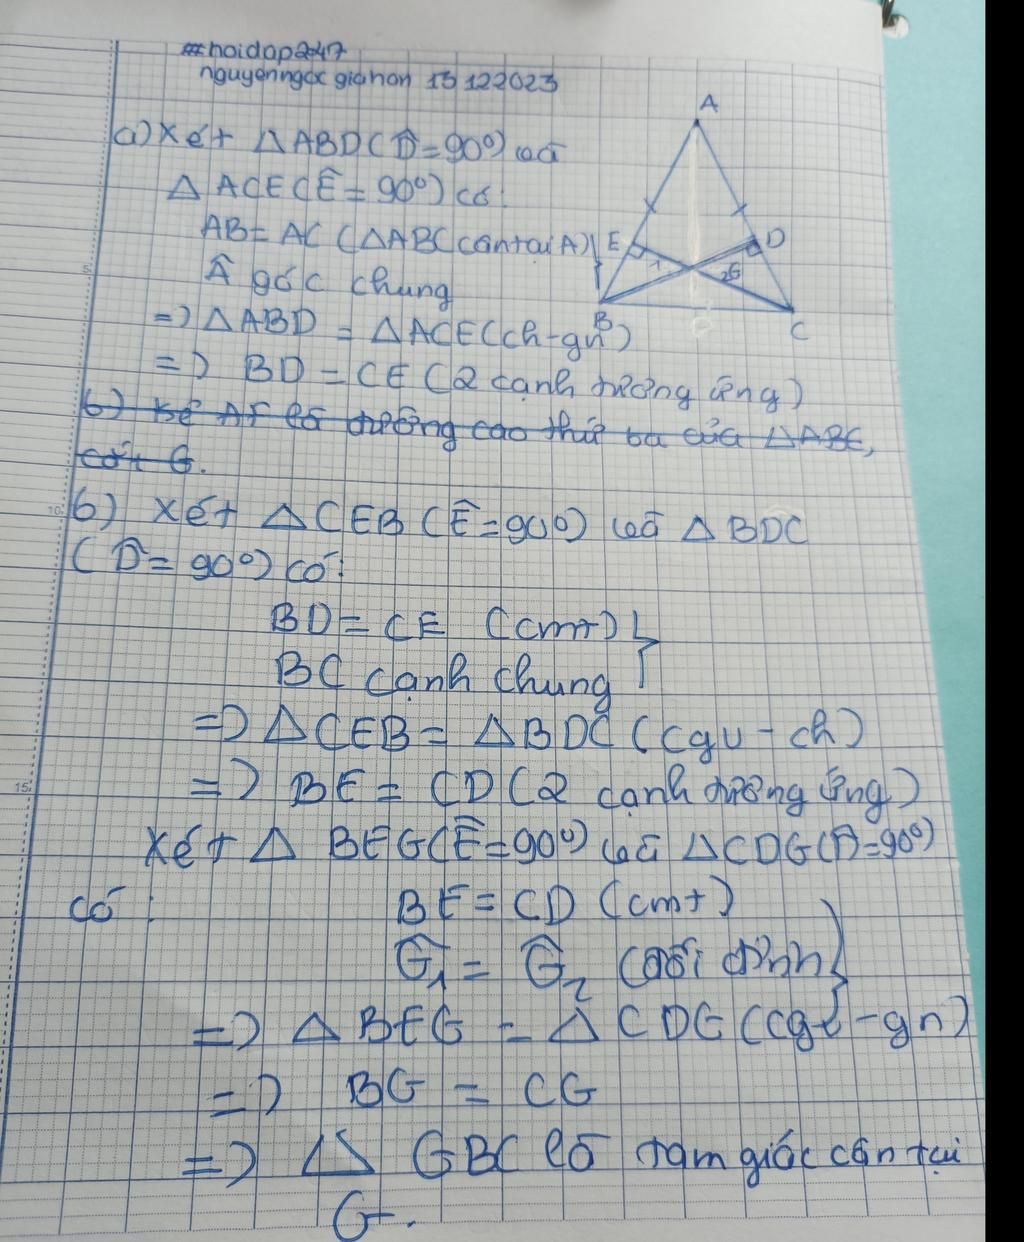 #hoidap247
nguyenngoc giahan 13122023
a) Xét △ABD (D̂=90°) và
△ACE (Ê=90°) có:
AB=AC (△ABC cân tại A)
Â góc chung
=> △ABD = △ACE (ch-gn)
=> BD = CE (2 cạnh tương ứng)
b) Kẻ AF là đường cao thứ ba của △ABC,
cắt G.
b) Xét △CEB (Ê=90°) và △BDC
(D̂=90°) có:
BD=CE (cmt)
BC cạnh chung
=> △CEB = △BDC (cgv-ch)
=> BE = CD (2 cạnh tương ứng)
Xét △BEG (Ê=90°) và △CDG (D̂=90°)
có:
BE=CD (cmt)
Ĝ1 = Ĝ2 (đối đỉnh)
=> △BEG = △CDG (cgv-gn)
=> BG = CG
=> △GBC là tam giác cân tại
G.
A
E
D
1
2G
B
C
5
10
15